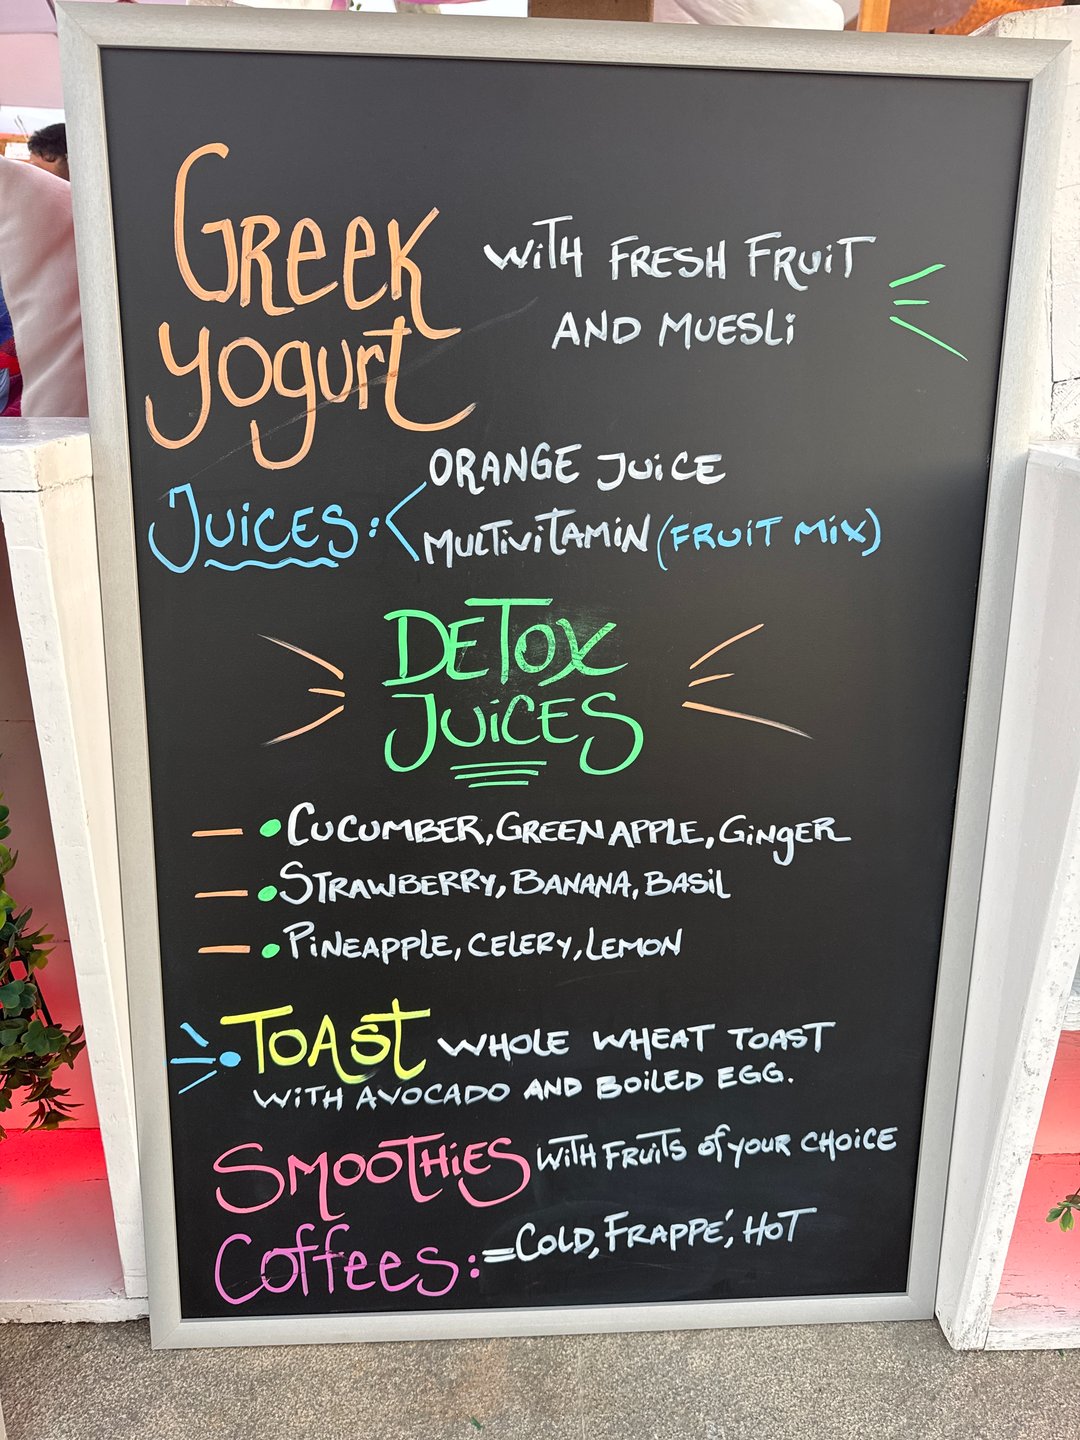 Greek
yogurt
WiTH FRESH FRUiT
AND MUESLi
JUiCES:
ORANGE JUiCE
MULTiViTAMiN (FRUiT MiX)
DETOX
JUiCES
CUCUMBER, GREEN APPLE, GiNGER
STRAWBERRY, BANANA, BASiL
PiNEAPPLE, CELERY, LEMON
TOAST WHOLE WHEAT TOAST
WiTH AVOCADO AND BOiLED EGG.
SMOOTHiES WiTH FRUiTS of YOUR CHOiCE
Coffees:=COLD, FRAPPÉ, HOT